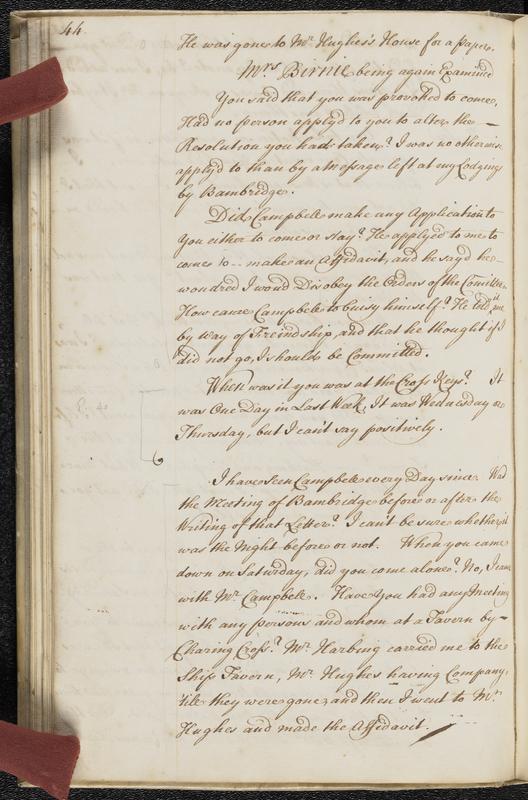 44.
He was gone to Mr. Hughes's House for a paper.
Mrs Birnie being again Examined
You said that you was provoked to come,
Had no person applyd to you to alter the
Resolution you had taken? I was no otherwise
applyd to than by a Message left at my Lodging
by Bambridge.
Did Campbell make any Application to
you either to come or stay? He applyed to me to
come to make an Affidavit, and he sayd he
wondred I woud Disobey the Orders of the Comittee.
How came Campbell to busy himself? He told it me
by way of Freindship, and that he thought if I
did not go, I should be Committed.
When was it you was at the Cross Keys? It
was One Day in Last Week, It was Wednesday or
Thursday, but I can't say positively.
I have seen Campbell every Day since. Was
the Meeting of Bambridge before or after the
Writing of that Letter? I can't be sure whether it
was the Night before or not. When you came
down on Saturday, did you come alone? No, I came
with Mr. Campbell. Have you had any Meeting
with any persons and whom at a Tavern by
Charing Cross? Mr. Harbing carried me to the
Ship Tavern, Mr. Hughes having Company,
till they were gone, and then I went to Mr.
Hughes and made the Affidavit.